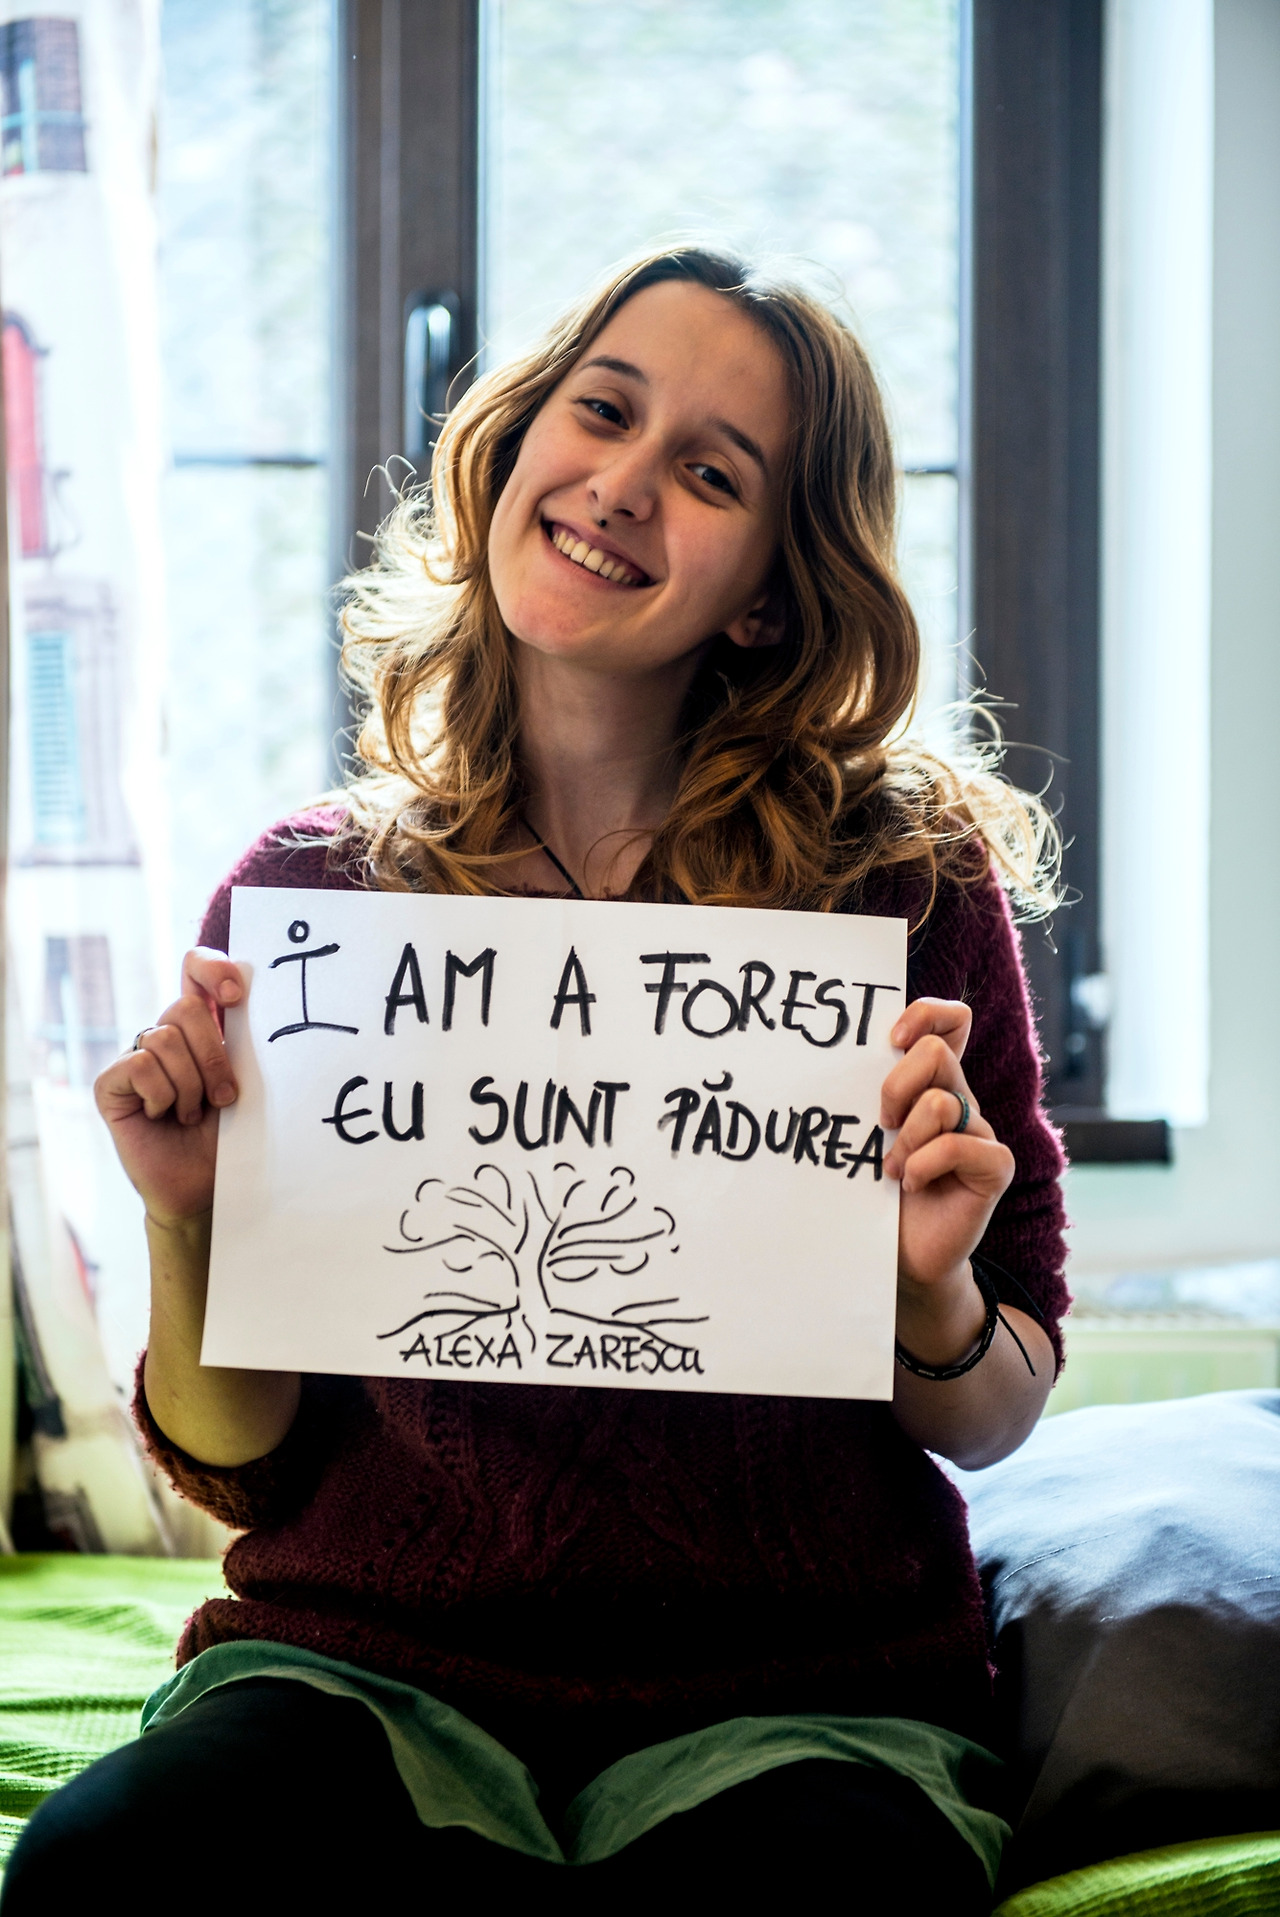 I AM A FOREST
EU SUNT PĂDUREA
ALEXA ZARESCU